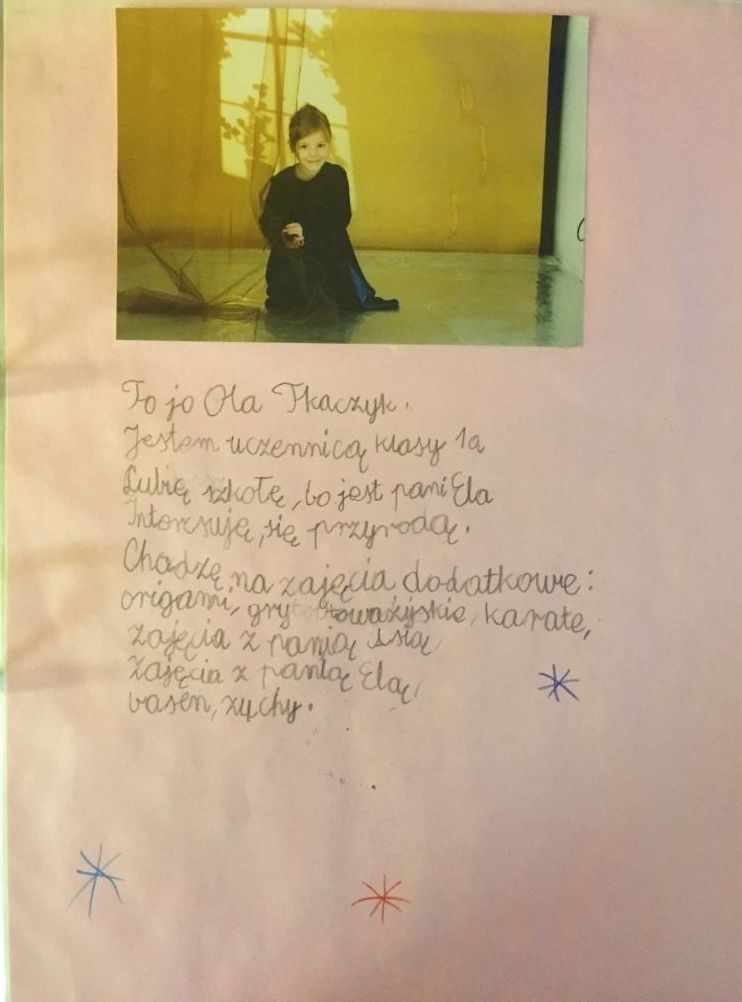 To jo Ola Tkaczyk.
Jestem uczennicą klasy 1a
Lubię szkołę, bo jest pani Ela
Interesuję, się przyrodą.
Chodzę na zajęcia dodatkowe:
origami, gry toważyskie, karate,
zajęcia z panią Asią,
Zajęcia z panią Elą,
basen, zuchy.